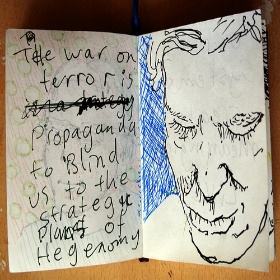 The war on
terror is
is a strategy
propaganda
to Blind
us to the
strategic
plans of
Hegenomy